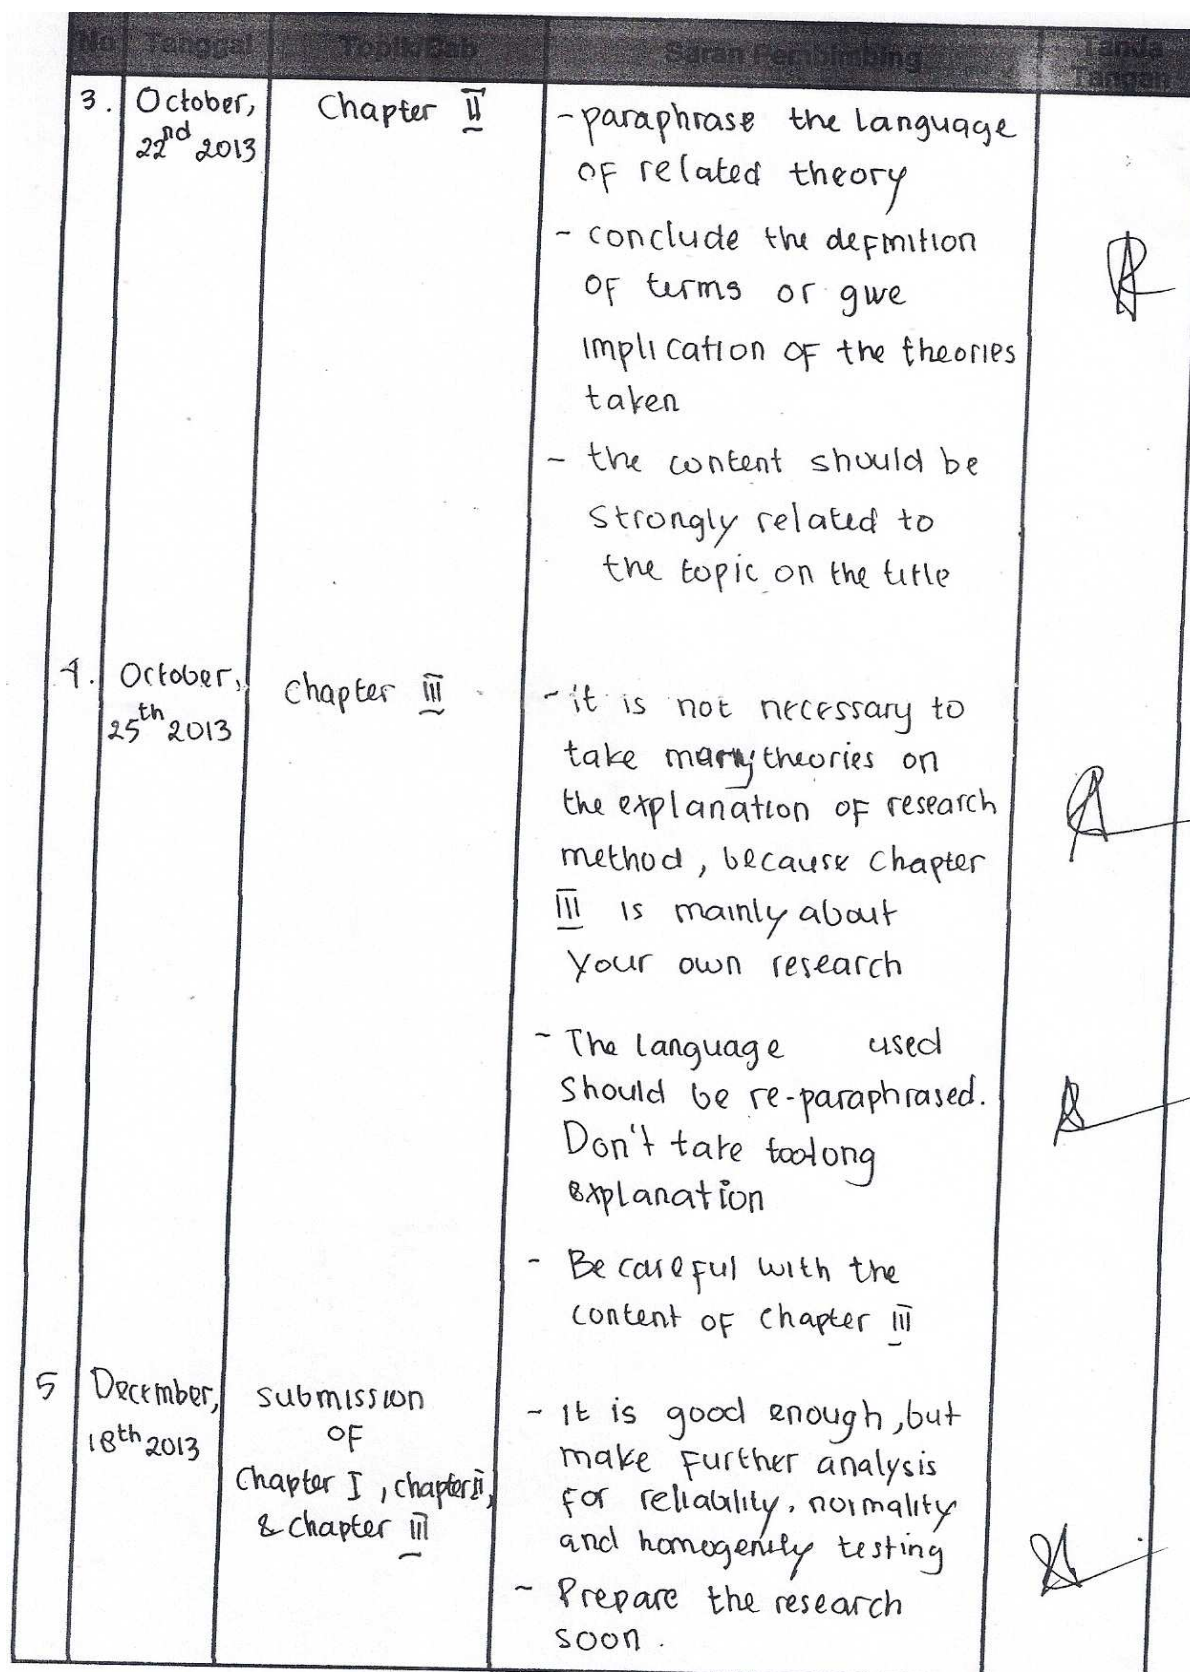 No Tanggal Topik/Bab Saran Pembimbing Tanda Tangan
3. October, 22nd 2013
Chapter II
- paraphrase the language
of related theory
- conclude the definition
of terms or give
implication of the theories
taken
- the content should be
strongly related to
the topic on the title
4. October, 25th 2013
Chapter III
- it is not necessary to
take many theories on
the explanation of research
method, because chapter
III is mainly about
your own research
- The language used
should be re-paraphrased.
Don't take too long
explanation
- Be careful with the
content of chapter III
5 December, 18th 2013
submission
of
Chapter I, chapter II,
& chapter III
- It is good enough, but
make further analysis
for reliability, normality
and homogenity testing
- Prepare the research
soon.